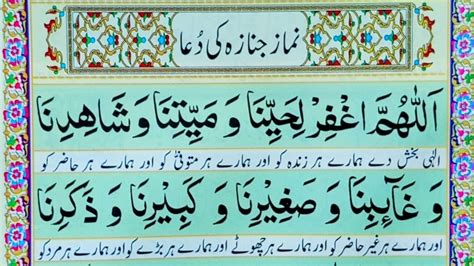 نماز جنازہ کی دُعا
اَللّٰهُمَّ اغْفِرْ لِحَيِّنَا وَ مَيِّتِنَا وَ شَاهِدِنَا
الٰہی بخش دے ہمارے ہر زندہ کو اور ہمارے ہر متوفیٰ کو اور ہمارے ہر حاضر کو
وَ غَآئِبِنَا وَ صَغِيْرِنَا وَ كَبِيْرِنَا وَ ذَكَرِنَا
اور ہمارے ہر غیر حاضر کو اور ہمارے ہر چھوٹے اور ہمارے ہر بڑے کو اور ہمارے ہر مرد کو